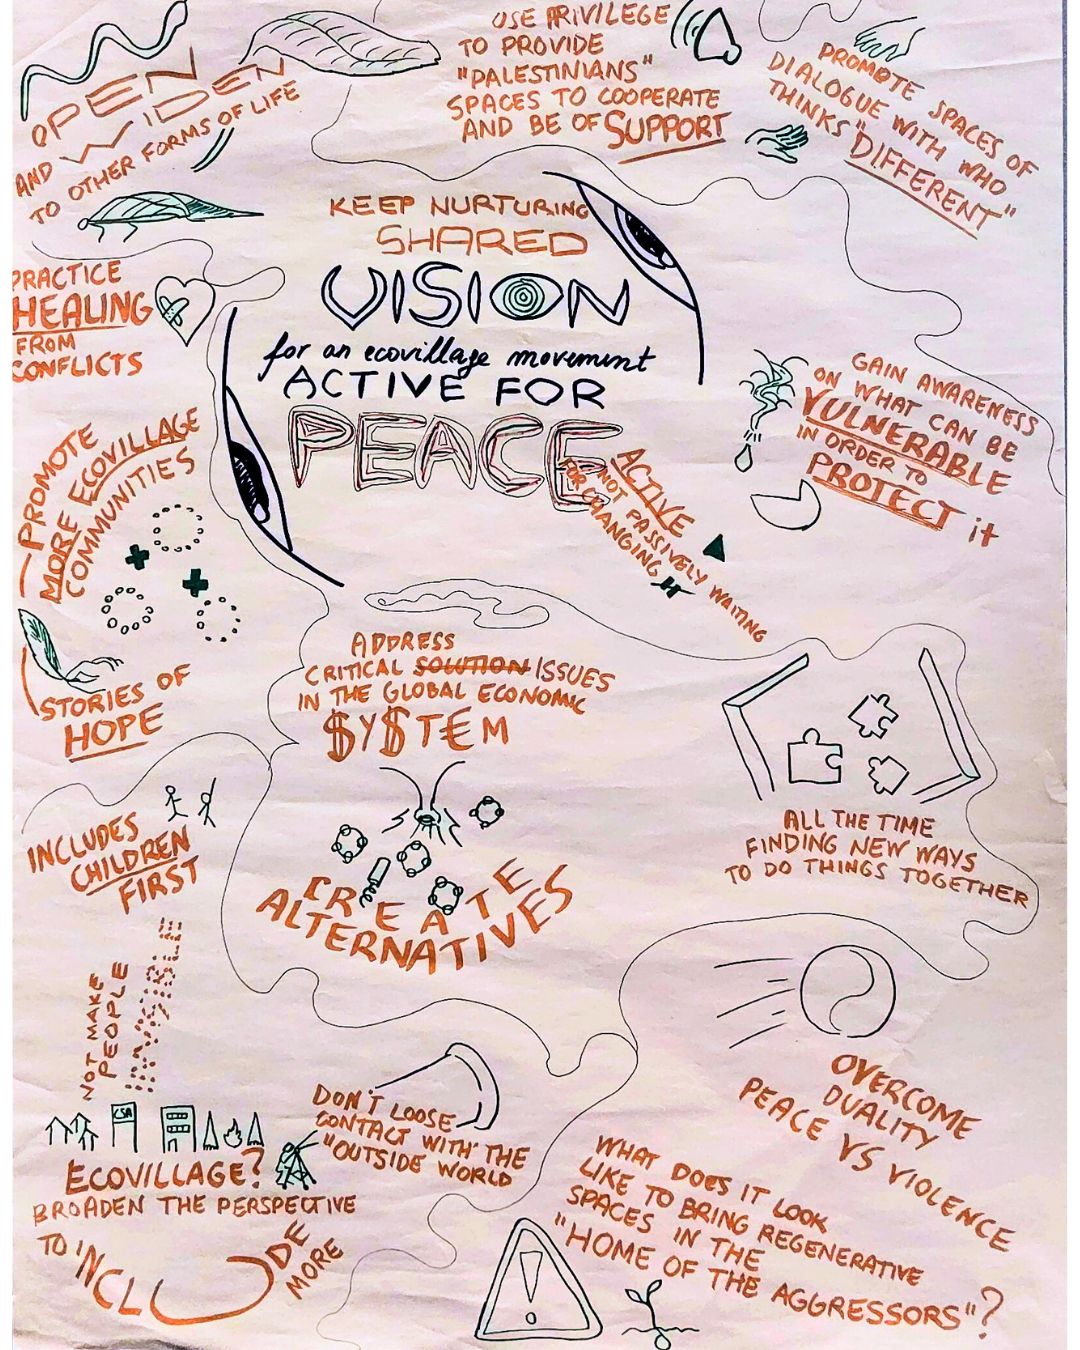 OPEN
AND WIDEN
TO OTHER FORMS OF LIFE
USE PRIVILEGE
TO PROVIDE
"PALESTINIANS"
SPACES TO COOPERATE
AND BE OF SUPPORT
PROMOTE SPACES OF
DIALOGUE WITH WHO
THINKS "DIFFERENT"
KEEP NURTURING
SHARED
VISION
for an ecovillage movement
ACTIVE FOR
PEACE
PRACTICE
HEALING
FROM
CONFLICTS
GAIN AWARENESS
ON WHAT CAN BE
VULNERABLE
IN ORDER TO
PROTECT it
ACTIVE
NOT PASSIVELY WAITING
FOR CHANGING IT
PROMOTE
MORE ECOVILLAGE
COMMUNITIES
STORIES OF
HOPE
ADDRESS
CRITICAL SOLUTION ISSUES
IN THE GLOBAL ECONOMIC
$Y$T€M
ALL THE TIME
FINDING NEW WAYS
TO DO THINGS TOGETHER
INCLUDES
CHILDREN
FIRST
CREATE
ALTERNATIVES
NOT MAKE
PEOPLE
INVISIBLE
CSA
ECOVILLAGE?
BROADEN THE PERSPECTIVE
TO INCLUDE
MORE
DON'T LOOSE
CONTACT WITH THE
"OUTSIDE WORLD
OVERCOME
DUALITY
PEACE VS VIOLENCE
WHAT DOES IT LOOK
LIKE TO BRING REGENERATIVE
SPACES IN THE
"HOME OF THE AGGRESSORS"?